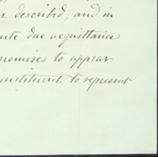 described; and in
due acquittance
promises to appear
constituent to represent